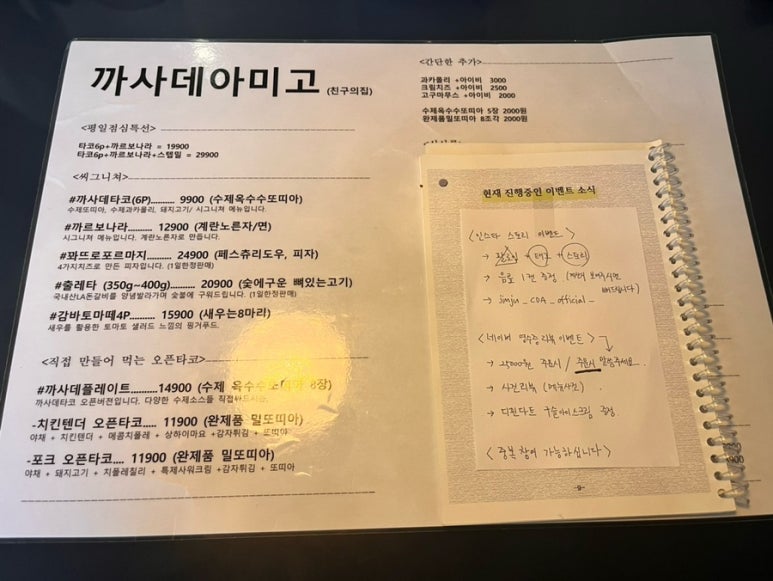 까사데아미고 (친구의집)
<평일점심특선>
타코6p+까르보나라 = 19900
타코6p+까르보나라+스텝밀 = 29900
<씨그니쳐>
#까사데타코(6P).......... 9900 (수제옥수수또띠아)
수제또띠아, 수제과카몰리, 돼지고기/ 시그니쳐 메뉴입니다.
#까르보나라.......... 12900 (계란노른자/면)
시그니쳐 메뉴입니다. 계란노른자로 만듭니다.
#꽈뜨로포르마지.......... 24900 (페스츄리도우, 피자)
4가지치즈로 만든 피자입니다. (1일한정판매)
#출레타 (350g~400g).......... 20900 (숯에구운 뼈있는고기)
국내산LA돈갈비를 양념발라가며 숯불에 구워드립니다. (1일한정판매)
#감바토마떼4P.......... 15900 (새우는8마리)
새우를 활용한 토마토 샐러드 느낌의 핑거푸드.
<직접 만들어 먹는 오픈타코>
#까사데플레이트..........14900 (수제 옥수수또띠아 8장)
까사데타코 오픈버전입니다. 다양한 수제소스를 직접
-치킨텐더 오픈타코..... 11900 (완제품 밀또띠아)
야채 + 치킨텐더 + 메콤치폴레 + 상하이마요 +감자튀김 + 또띠아
-포크 오픈타코..... 11900 (완제품 밀또띠아)
야채 + 돼지고기 + 치폴레칠리 + 특제사워크림 +감자튀김 + 또띠아
<간단한 추가>
과카몰리 +아이비 3000
크림치즈 +아이비 2500
고구마무스 +아이비 2000
수제옥수수또띠아 5장 2000원
완제품밀또띠아 8조각 2000원
현재 진행중인 이벤트 소식
<인스타 스토리 이벤트>
→ 팔로잉 + 태그 + 스토리
→ 음료 1캔 증정 (제대로 보여주시면
됩니다)
→ jinjin_CDA_official_
<네이버 영수증리뷰이벤트>
→ 25000원 주문시 / 주문시 말씀주세요.
→ 사진리뷰 (메뉴사진)
→ 디핀다트 구슬아이스크림 증정
<중복 참여 가능하십니다>
-9-